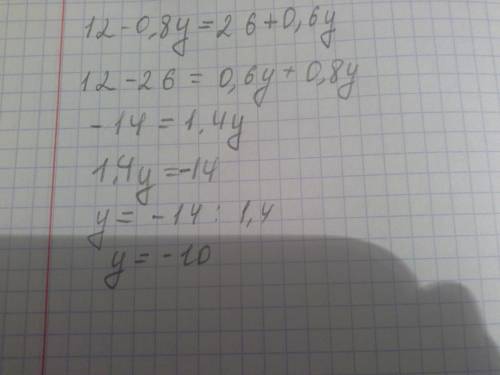 12-0,8y=26+0,6y
12-26=0,6y+0,8y
-14=1,4y
1,4y=-14
y=-14:1,4
y=-10